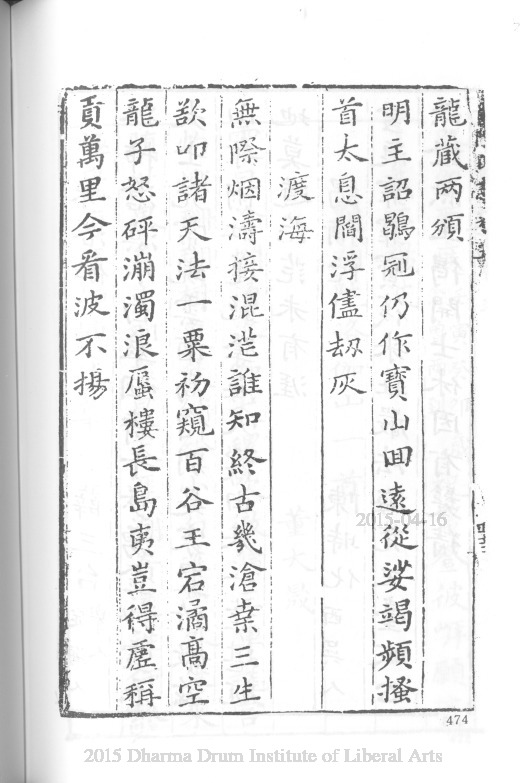 龍藏两頒
明主詔鶡冠仍作寶山囬遠從娑竭頻搔
首太息閻浮儘劫灰
渡海
無際烟濤接混茫誰知終古幾滄桒三生
欲叩諸天法一粟初窺百谷王宕潏髙空
龍子怒砰漰濁浪蜃樓長島夷豈得虛稱
貢萬里今看波不揚
474
2015-04-16
2015 Dharma Drum Institute of Liberal Arts